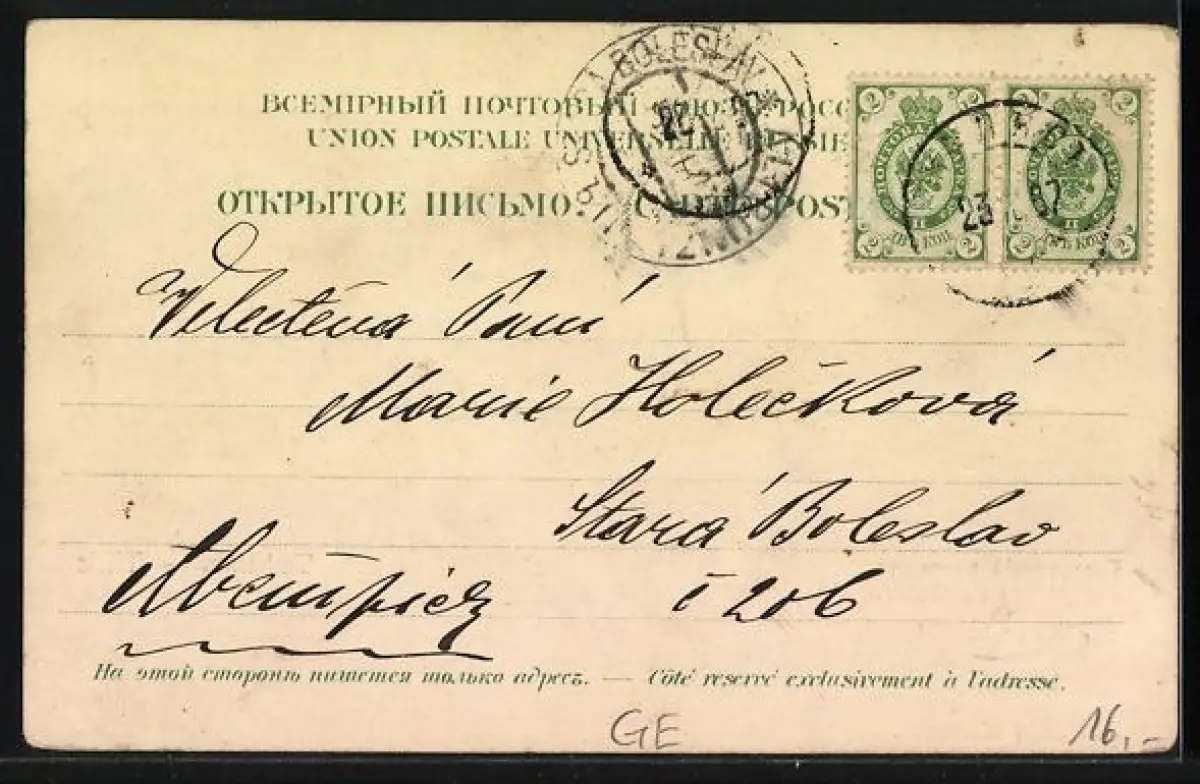 ВСЕМІРНЫЙ ПОЧТОВЫЙ СОЮЗЪ РОСС
UNION POSTALE UNIVERSELLE
ОТКРЫТОЕ ПИСЬМО. POST
BOLESLAV
2 2 2 2
2 2 2 2
23 07
Velectěná Paní
Marie Holečková
Stará Boleslav
č 206
На этой сторонѣ пишется только адресъ. — Côté reservé exclusivement à l'adresse.
GE
16,-